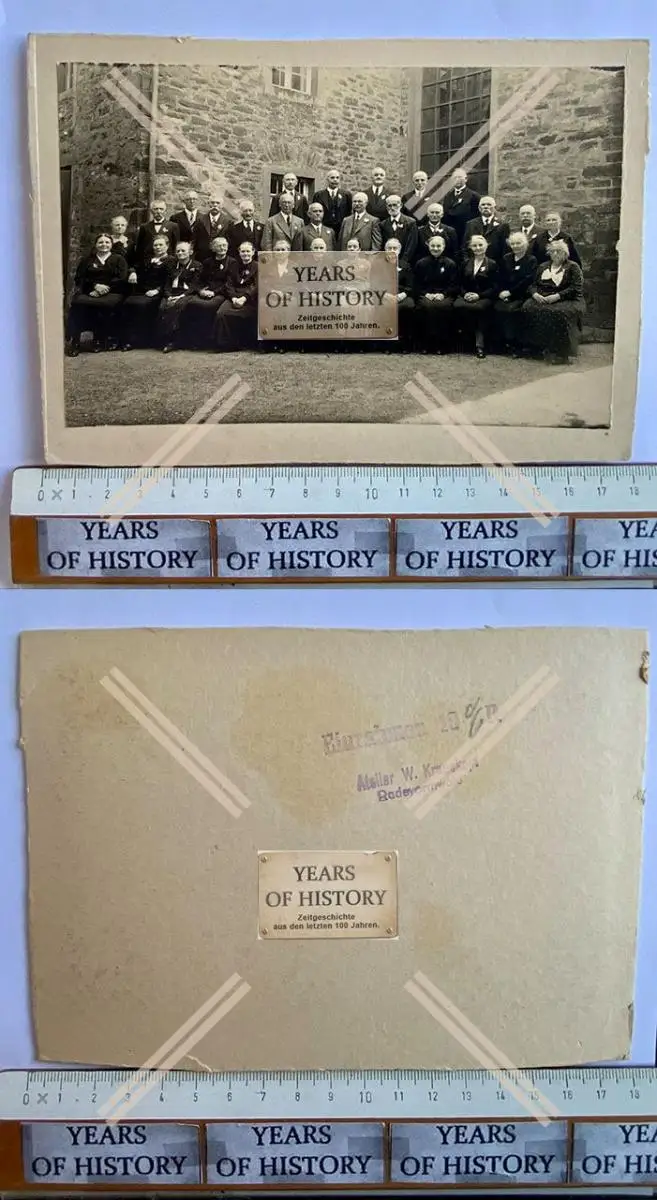 YEARS
OF HISTORY
Zeitgeschichte
aus den letzten 100 Jahren.
0 1 2 3 4 5 6 7 8 9 10 11 12 13 14 15 16 17 18
YEARS
OF HISTORY
YEARS
OF HISTORY
YEARS
OF HISTORY
YEA
OF HIS
10 %
Atelier W.
YEARS
OF HISTORY
Zeitgeschichte
aus den letzten 100 Jahren.
0 1 2 3 4 5 6 7 8 9 10 11 12 13 14 15 16 17 18
YEARS
OF HISTORY
YEARS
OF HISTORY
YEARS
OF HISTORY
YEA
OF HIS